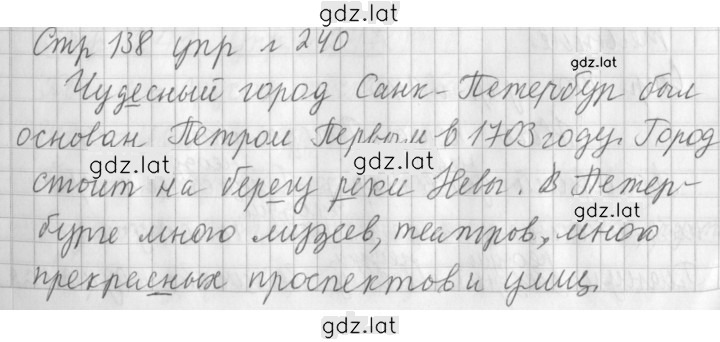 gdz.lat
Стр 138 упр № 240
gdz.lat
Чудесный город Санк-Петербург был
основан Петром Первым в 1703 году. Город
gdz.lat gdz.lat
стоит на берегу реки Невы. В Петер-
gdz.lat
бурге много музеев, театров, много
прекрасных проспектов и улиц.
gdz.lat